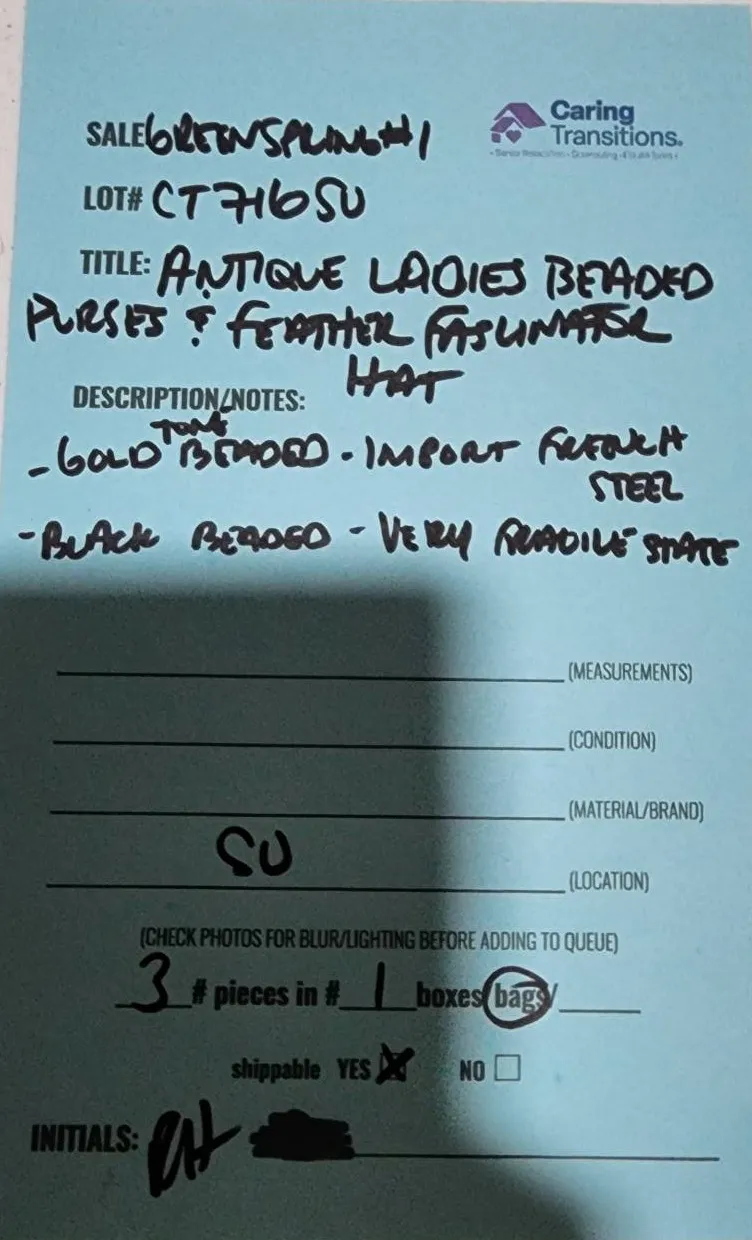 Caring
Transitions.
SALE GREENSPRING #1
LOT# CT716SU
TITLE: ANTIQUE LADIES BEADED
PURSES & FEATHER FASCINATOR
HAT
DESCRIPTION/NOTES:
- GOLD TONE BEADED - IMPORT FRENCH
STEEL
- BLACK BEADED - VERY FRAGILE STATE
(MEASUREMENTS)
(CONDITION)
(MATERIAL/BRAND)
SU (LOCATION)
(CHECK PHOTOS FOR BLUR/LIGHTING BEFORE ADDING TO QUEUE)
3 # pieces in # 1 boxes/bags/
shippable YES NO
INITIALS: